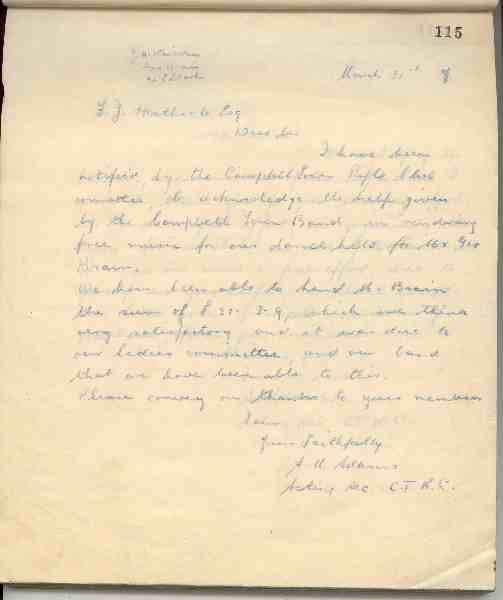 115
March 31st
F. J. Esq
Dear Sir
I have been
notified, by the Campbell Town Rifle Club
committee to acknowledge the help given
by the Campbell Town Band, in rendering
free music for our dance held for Mr Geo
Brain.
We have been able to hand Mr Brain
the sum of £ which we think
very satisfactory and it was due to
our ladies committee, and our band
that we have been able to this.
Please convey our thanks to your members
Yours Faithfully
A Adams
Acting Sec C.T.R.C.